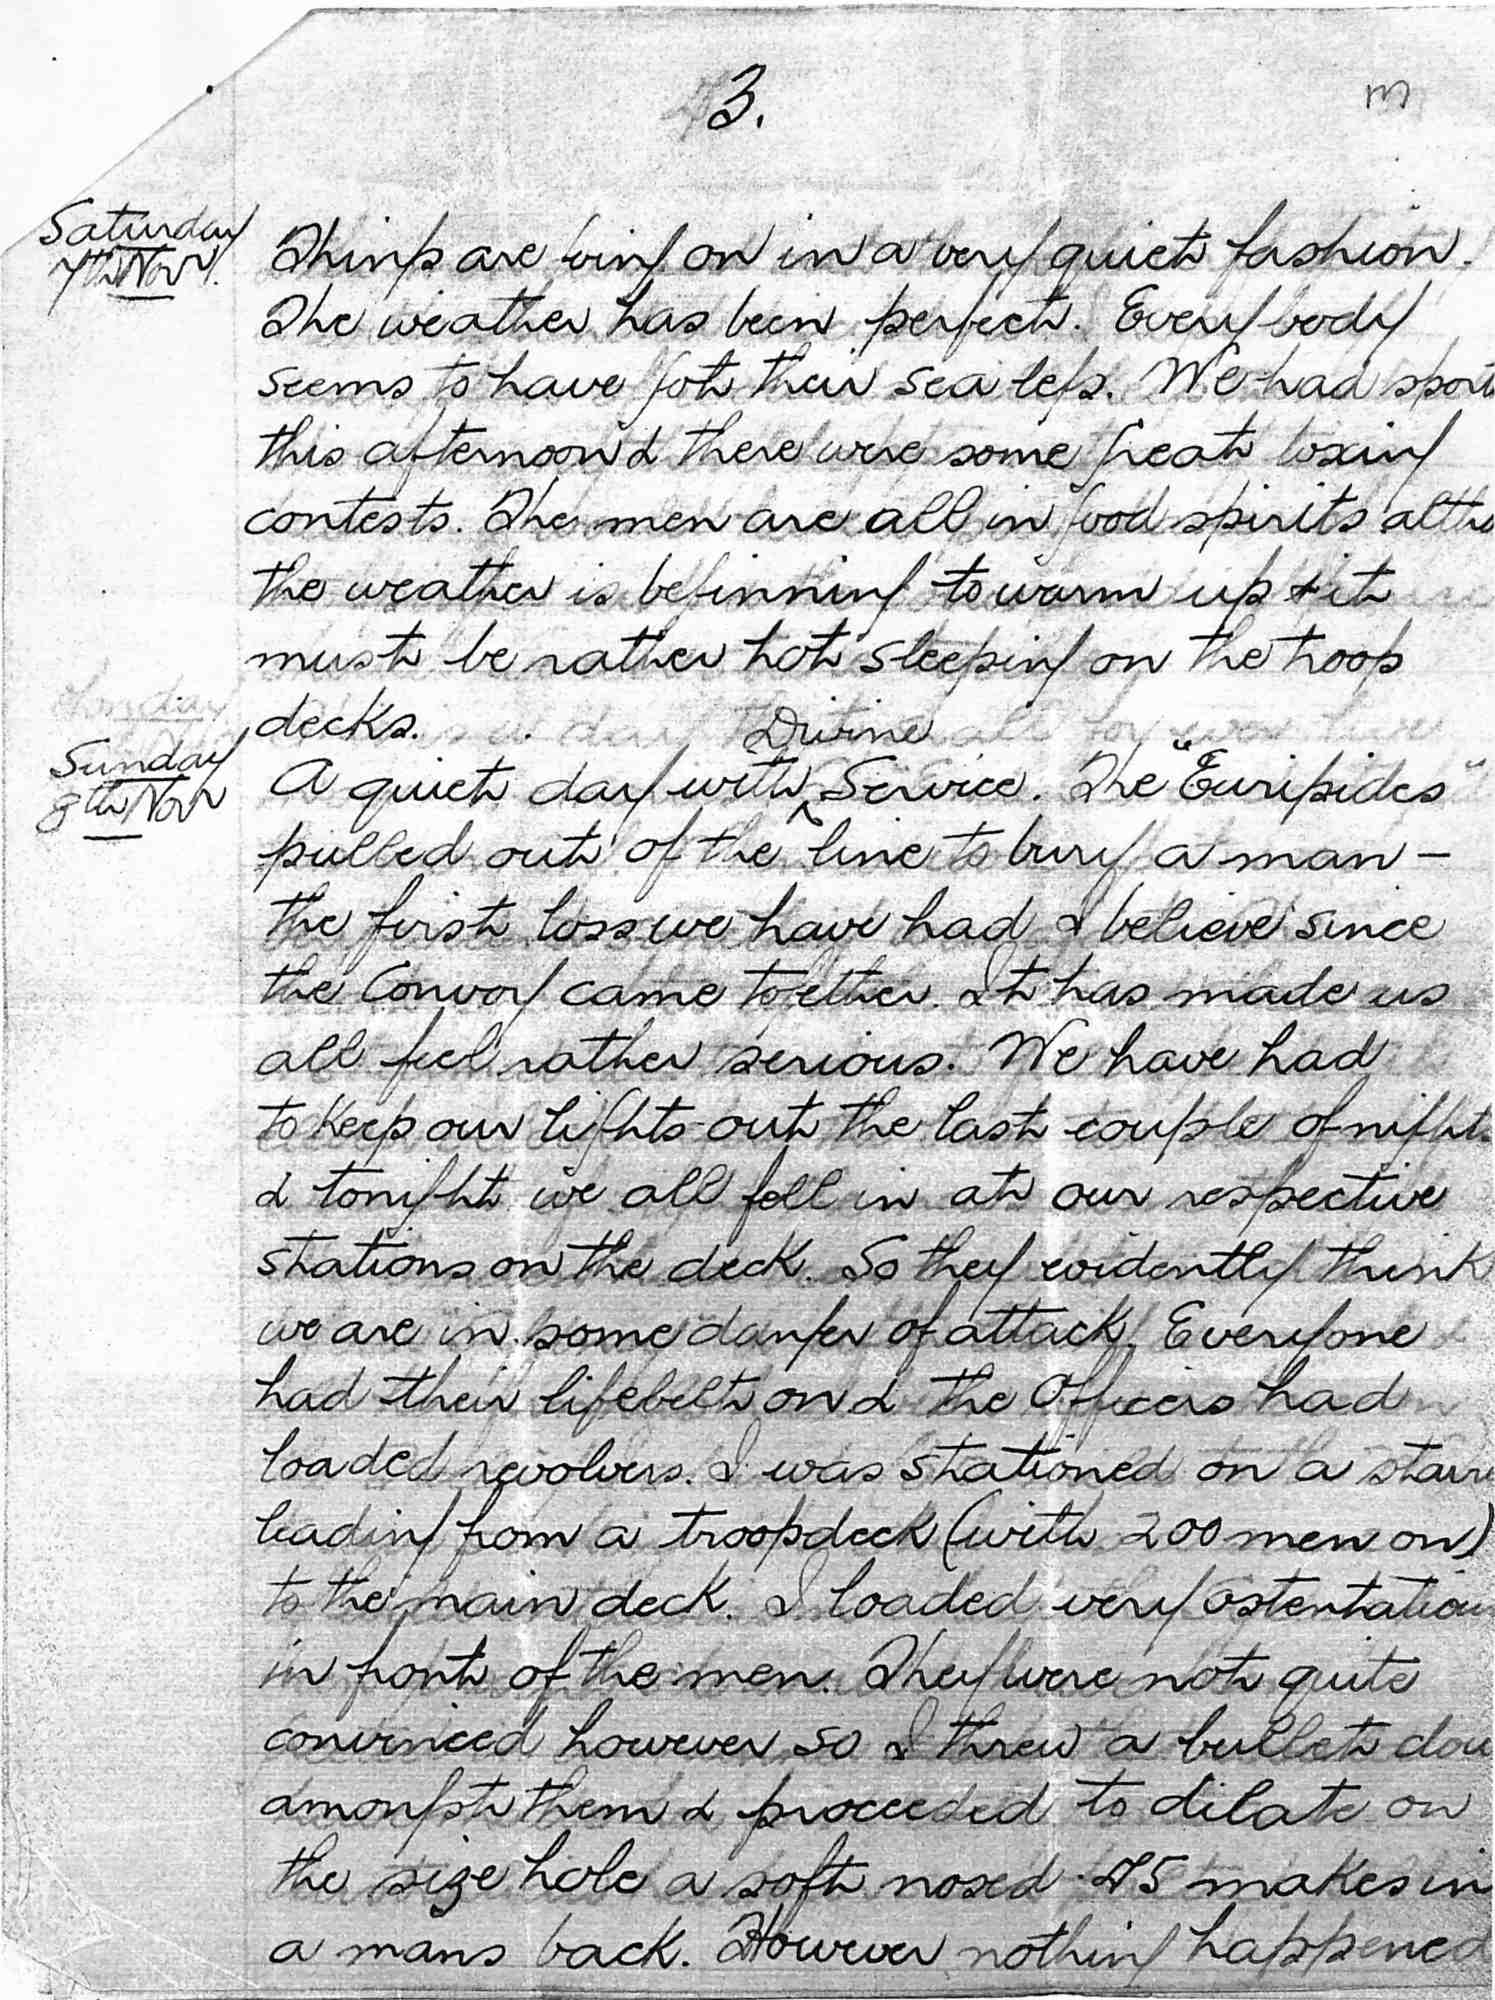 3.
m
Saturday
7th Nov.
Things are going on in a very quiet fashion.
The weather has been perfect. Everybody
seems to have got their sea legs. We had sports
this afternoon & there were some great boxing
contests. The men are all in good spirits altho
the weather is beginning to warm up & it
must be rather hot sleeping on the troop
decks.
Sunday
8th Nov
Divine
A quiet day with ^ Service. The "Euripides"
pulled out of the line to bury a man –
the first loss we have had I believe since
the Convoy came together. It has made us
all feel rather serious. We have had
to keep our lights out the last couple of nights
& tonight we all fell in at our respective
stations on the deck. So they evidently think
we are in some danger of attack. Everyone
had their lifebelt on & the Officers had
loaded revolvers. I was stationed on a stair
leading from a troopdeck (with 200 men on)
to the main deck. I loaded very ostentatiou
in front of the men. They were not quite
convinced however so I threw a bullet dow
amongst them & proceeded to dilate on
the size hole a soft nosed .45 makes in
a mans back. However nothing happened